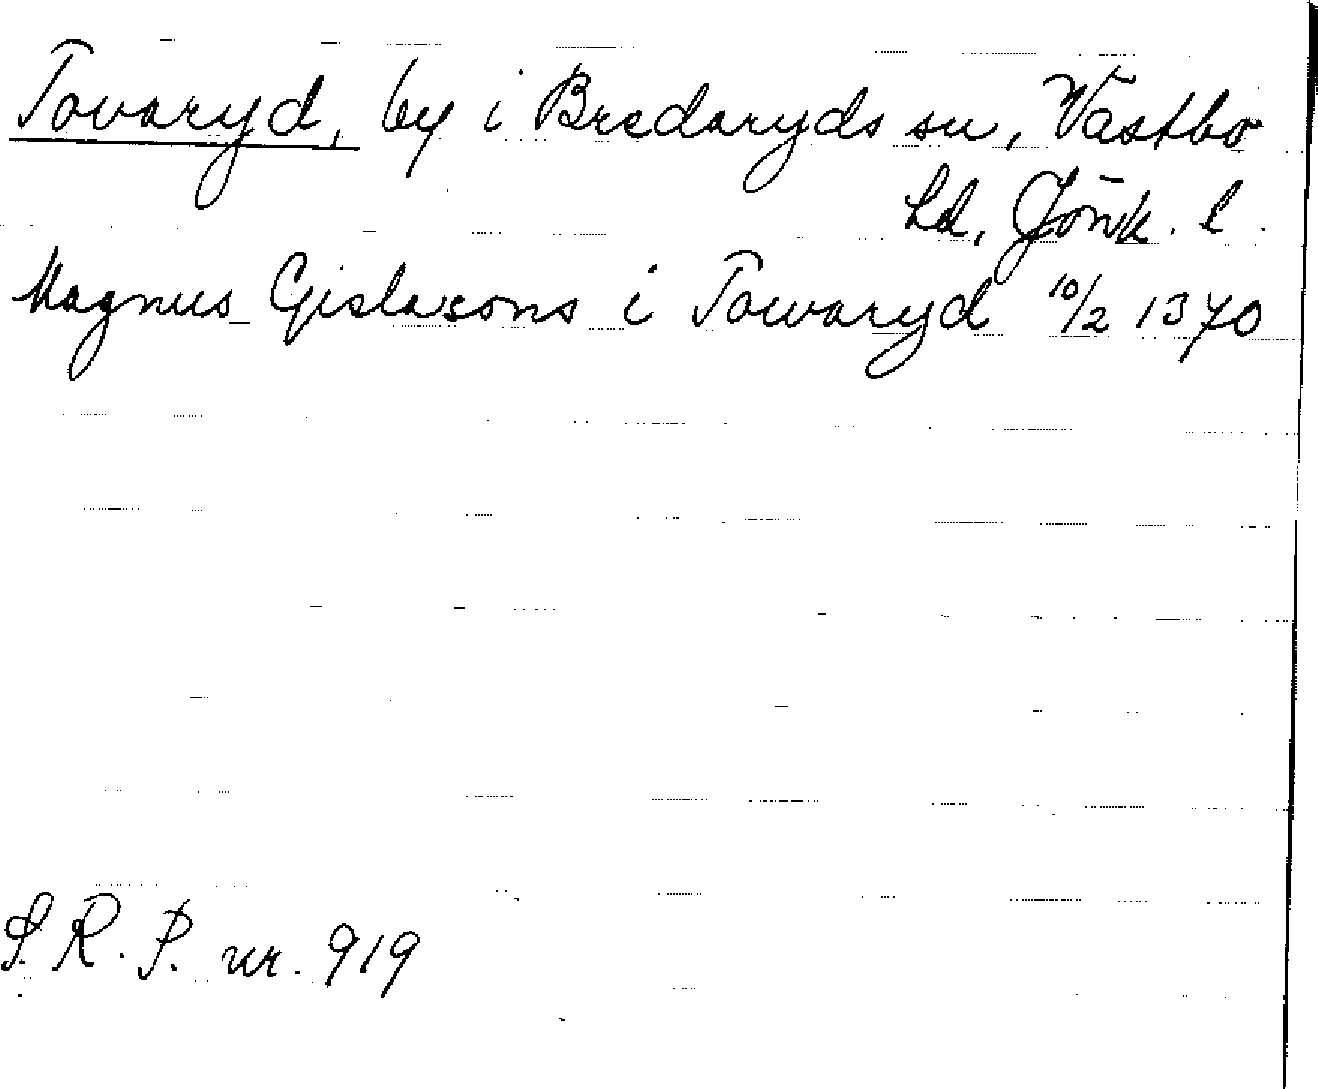 Tovaryd, by i Bredaryds sn, Västbo
hd, Jönk. l.
Magnus Gislasons i Towaryd 10/2 1370
S.R.P. nr. 919